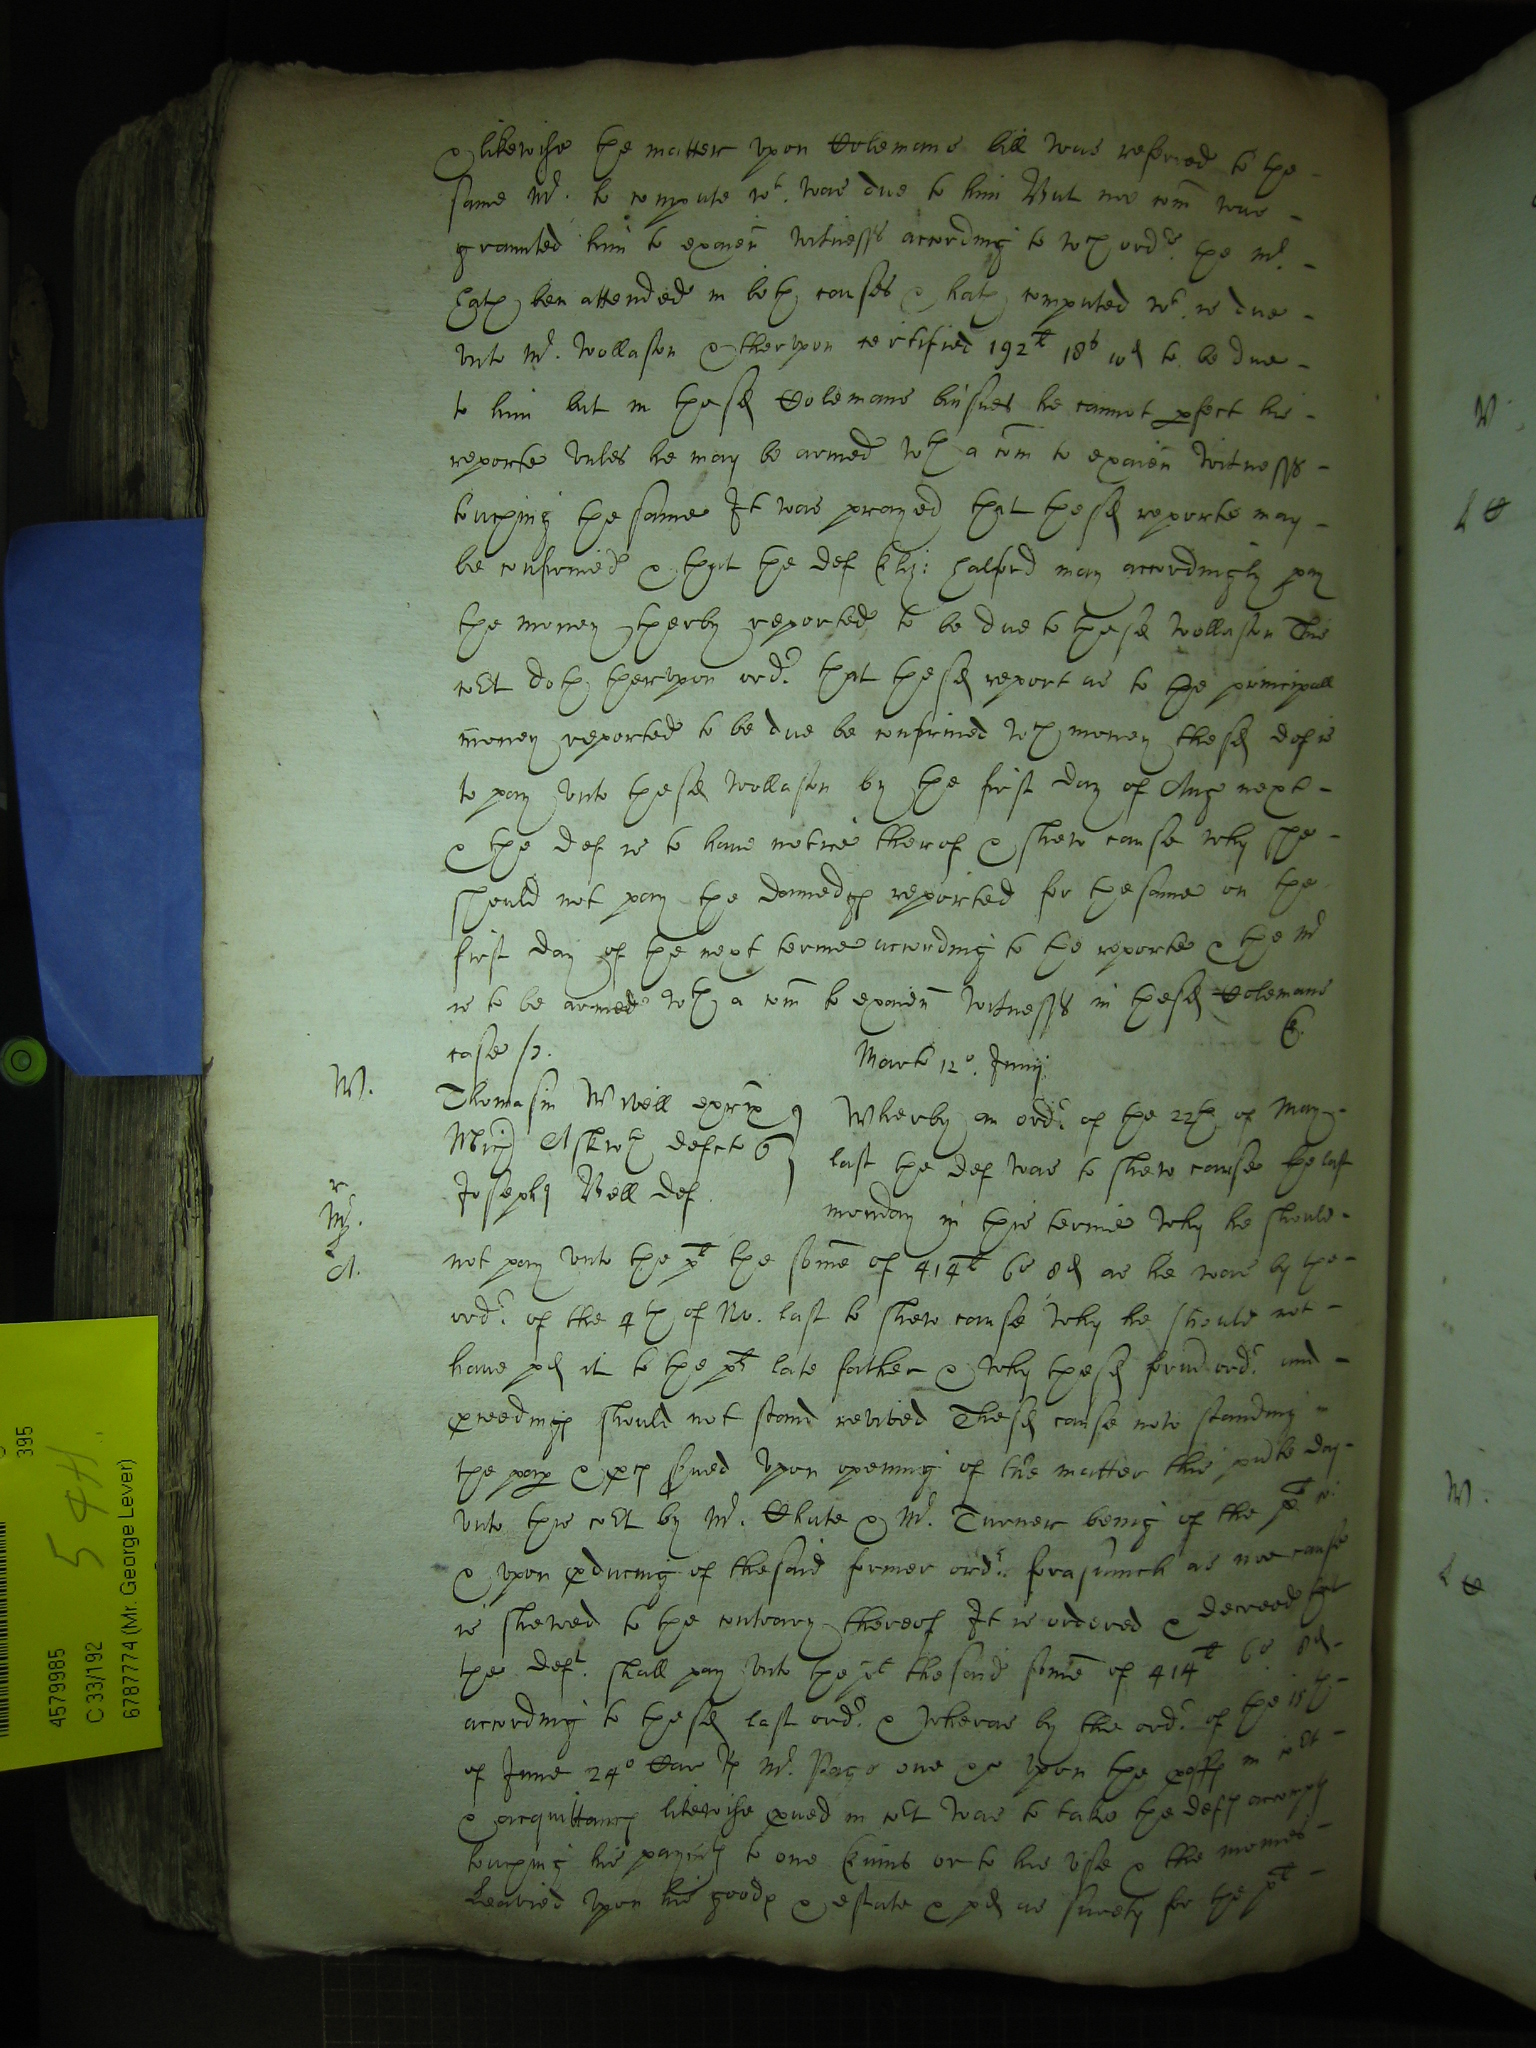 & likewise the matter upon Colemans bill was referred to the -
same Mr. to compute wt. was due to him But noe com was -
graunted him to exaien witnesses according to wch ordr. the Mr. -
hath ben attended in both causes & hath computed wt. is due -
unto Mr. Wollaston & therupon certified 192li 18s 10d to be due -
to him but in the sd Colemans busines he cannot pfect his -
reporte unles he may be armed wth a com to exaien witnesses -
touching the same It was prayed that the sd reporte may -
be confirmed & that the def Eliz: Halford may accordingly pay
the money therby reported to be due to the sd Wollaston This
cort doth therupon ordr. that the sd report as to the principall
money reported to be due be confirmed wch money the sd def is
to pay unto the sd Wollaston by the first day of Aug next -
& the def is to have notice therof & shew cause why she -
should not pay the damedgs reported for the same on the
first day of the next terme according to the reporte & the Mr
is to be armed wth a com to exaien witnesses in the sd Colemans
case /.
E.
Marts 12o. Junij.
W.
Thomasin Wivell exrix
Mich Askwth defct
Joseph Bell def.
Wherby an ordr. of the 22th of May -
last the def was to shew cause the last
monday in this terme why he should -
r
Mr.
A.
not pay unto the pt the some of 414li 6s 8d as he was by the -
ordr. of the 4th of No. last to shew cause why he should not -
have pd it to the pts late father & why the sd form ordr. and -
pceedings should not stand revived The sd cause now standing -
the pap & pch sued upon opening of the matter this pnte day -
unto this cort by Mr. Chute & Mr. Turner being of the pts co:
& upon pducing of the said former ordr. forasmuch as noe cause
is shewed to the contrary thereof It is ordered & decreed that
the deft. shall pay unto the pt the said some of 414li 6s 8d -
according to the sd last ordr. & wheras by the ordr. of the 15th -
of June 24o Car Rs Mr. Page one &c upon the in cort -
& acquittancs likewise pued in cort was to take the defs accompts
touching his paymts to one or to his use & the monies -
leavied upon his goods & estate & pd as surety for the pt -
W.
W.
4579985
C 33/192
6787774 (Mr. George Lever)
395